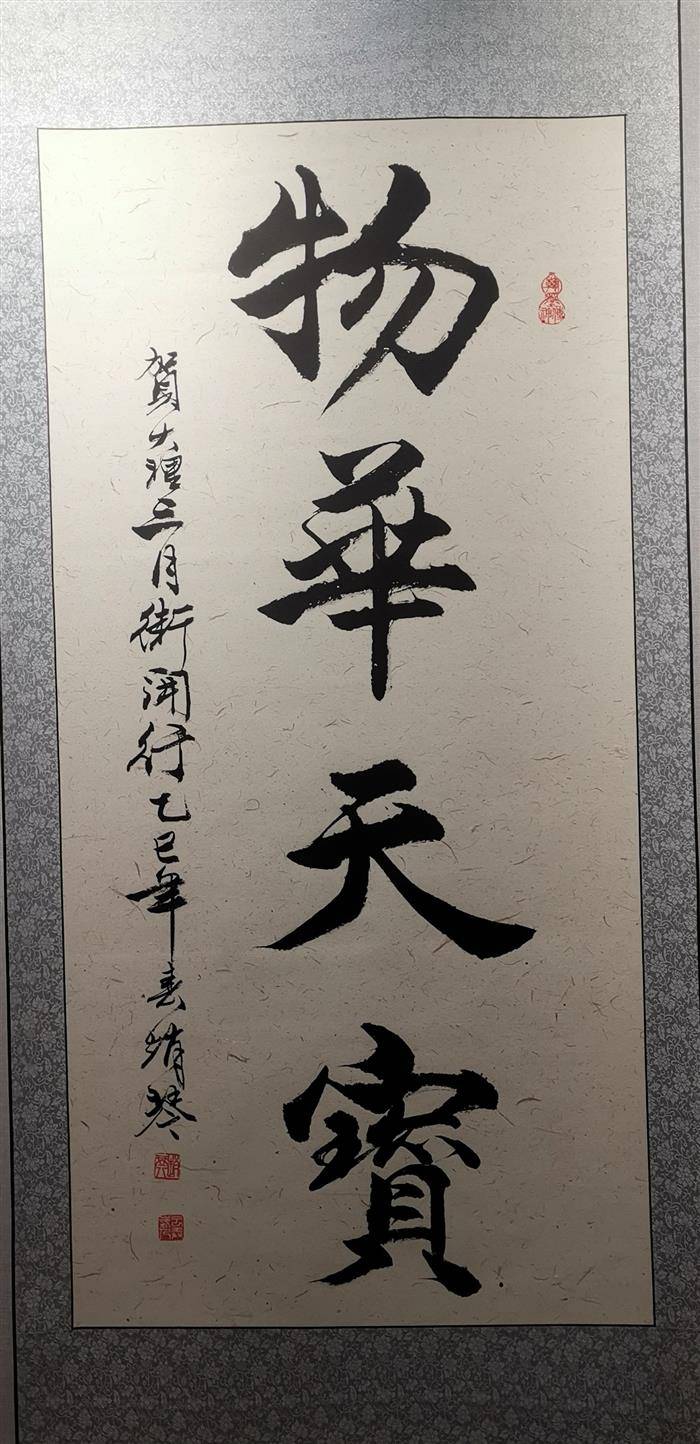 物華天寳
賀大理三月街開行乙巳年春琴